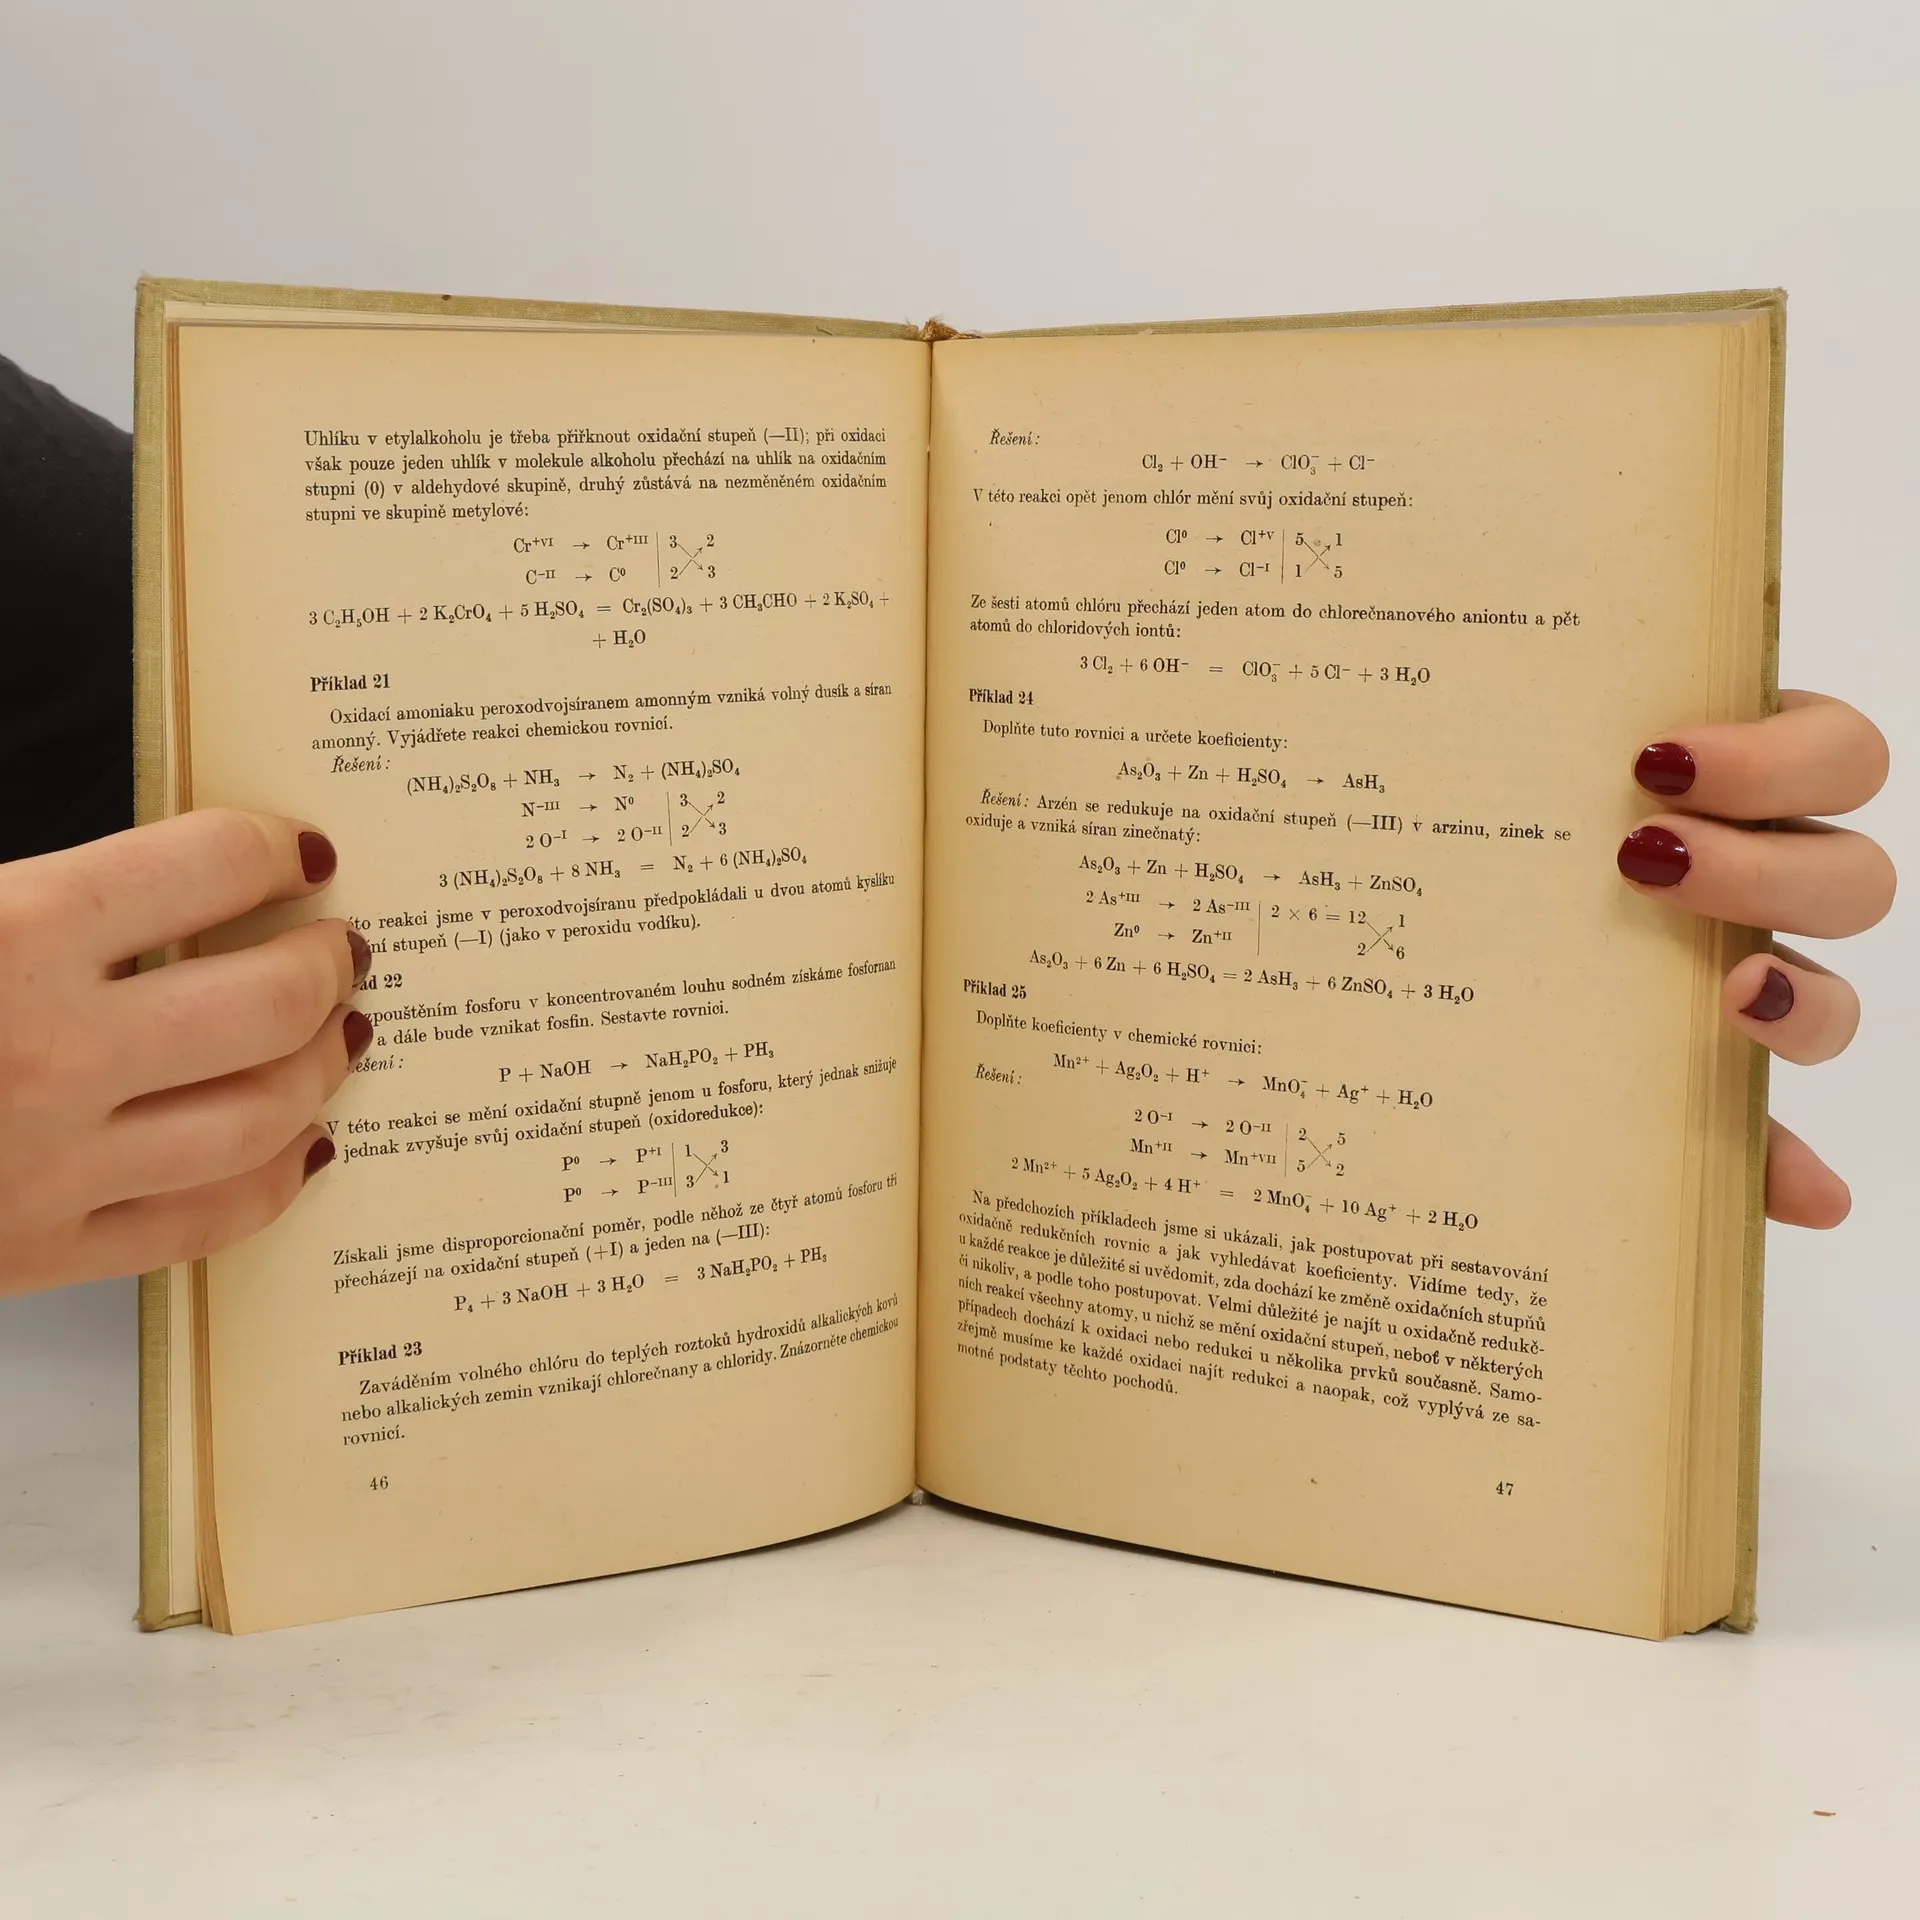 Uhlíku v etylalkoholu je třeba přiřknout oxidační stupeň (—II); při oxidaci
však pouze jeden uhlík v molekule alkoholu přechází na uhlík na oxidačním
stupni (0) v aldehydové skupině, druhý zůstává na nezměněném oxidačním
stupni ve skupině metylové:
Cr⁺ⱽᴵ → Cr⁺ᴵᴵᴵ | 3 2
C⁻ᴵᴵ → C⁰ | 2 3
3 C₂H₅OH + 2 K₂CrO₄ + 5 H₂SO₄ = Cr₂(SO₄)₃ + 3 CH₃CHO + 2 K₂SO₄ +
+ H₂O
Příklad 21
Oxidací amoniaku peroxodvojsíranem amonným vzniká volný dusík a síran
amonný. Vyjádřete reakci chemickou rovnicí.
Řešení:
(NH₄)₂S₂O₈ + NH₃ → N₂ + (NH₄)₂SO₄
N⁻ᴵᴵᴵ → N⁰ | 3 2
2 O⁻ᴵ → 2 O⁻ᴵᴵ | 2 3
3 (NH₄)₂S₂O₈ + 8 NH₃ = N₂ + 6 (NH₄)₂SO₄
éto reakci jsme v peroxodvojsíranu předpokládali u dvou atomů kyslíku
ní stupeň (—I) (jako v peroxidu vodíku).
ad 22
zpouštěním fosforu v koncentrovaném louhu sodném získáme fosfornan
a dále bude vznikat fosfin. Sestavte rovnici.
ešení:
P + NaOH → NaH₂PO₂ + PH₃
V této reakci se mění oxidační stupně jenom u fosforu, který jednak snižuje
jednak zvyšuje svůj oxidační stupeň (oxidoredukce):
P⁰ → P⁺ᴵ | 1 3
P⁰ → P⁻ᴵᴵᴵ | 3 1
Získali jsme disproporcionační poměr, podle něhož ze čtyř atomů fosforu tři
přecházejí na oxidační stupeň (+I) a jeden na (—III):
P₄ + 3 NaOH + 3 H₂O = 3 NaH₂PO₂ + PH₃
Příklad 23
Zaváděním volného chlóru do teplých roztoků hydroxidů alkalických kovů
nebo alkalických zemin vznikají chlorečnany a chloridy. Znázorněte chemickou
rovnicí.
46
Řešení:
Cl₂ + OH⁻ → ClO₃⁻ + Cl⁻
V této reakci opět jenom chlór mění svůj oxidační stupeň:
Cl⁰ → Cl⁺ⱽ | 5 1
Cl⁰ → Cl⁻ᴵ | 1 5
Ze šesti atomů chlóru přechází jeden atom do chlorečnanového aniontu a pět
atomů do chloridových iontů:
3 Cl₂ + 6 OH⁻ = ClO₃⁻ + 5 Cl⁻ + 3 H₂O
Příklad 24
Doplňte tuto rovnici a určete koeficienty:
As₂O₃ + Zn + H₂SO₄ → AsH₃
Řešení: Arzén se redukuje na oxidační stupeň (—III) v arzinu, zinek se
oxiduje a vzniká síran zinečnatý:
As₂O₃ + Zn + H₂SO₄ → AsH₃ + ZnSO₄
2 As⁺ᴵᴵᴵ → 2 As⁻ᴵᴵᴵ | 2 × 6 = 12 1
Zn⁰ → Zn⁺ᴵᴵ | 2 6
As₂O₃ + 6 Zn + 6 H₂SO₄ = 2 AsH₃ + 6 ZnSO₄ + 3 H₂O
Příklad 25
Doplňte koeficienty v chemické rovnici:
Mn²⁺ + Ag₂O₂ + H⁺ → MnO₄⁻ + Ag⁺ + H₂O
Řešení:
2 O⁻ᴵ → 2 O⁻ᴵᴵ | 2 5
Mn⁺ᴵᴵ → Mn⁺ⱽᴵᴵ | 5 2
2 Mn²⁺ + 5 Ag₂O₂ + 4 H⁺ = 2 MnO₄⁻ + 10 Ag⁺ + 2 H₂O
Na předchozích příkladech jsme si ukázali, jak postupovat při sestavování
oxidačně redukčních rovnic a jak vyhledávat koeficienty. Vidíme tedy, že
u každé reakce je důležité si uvědomit, zda dochází ke změně oxidačních stupňů
či nikoliv, a podle toho postupovat. Velmi důležité je najít u oxidačně redukč-
ních reakcí všechny atomy, u nichž se mění oxidační stupeň, neboť v některých
případech dochází k oxidaci nebo redukci u několika prvků současně. Samo-
zřejmě musíme ke každé oxidaci najít redukci a naopak, což vyplývá ze sa-
motné podstaty těchto pochodů.
47